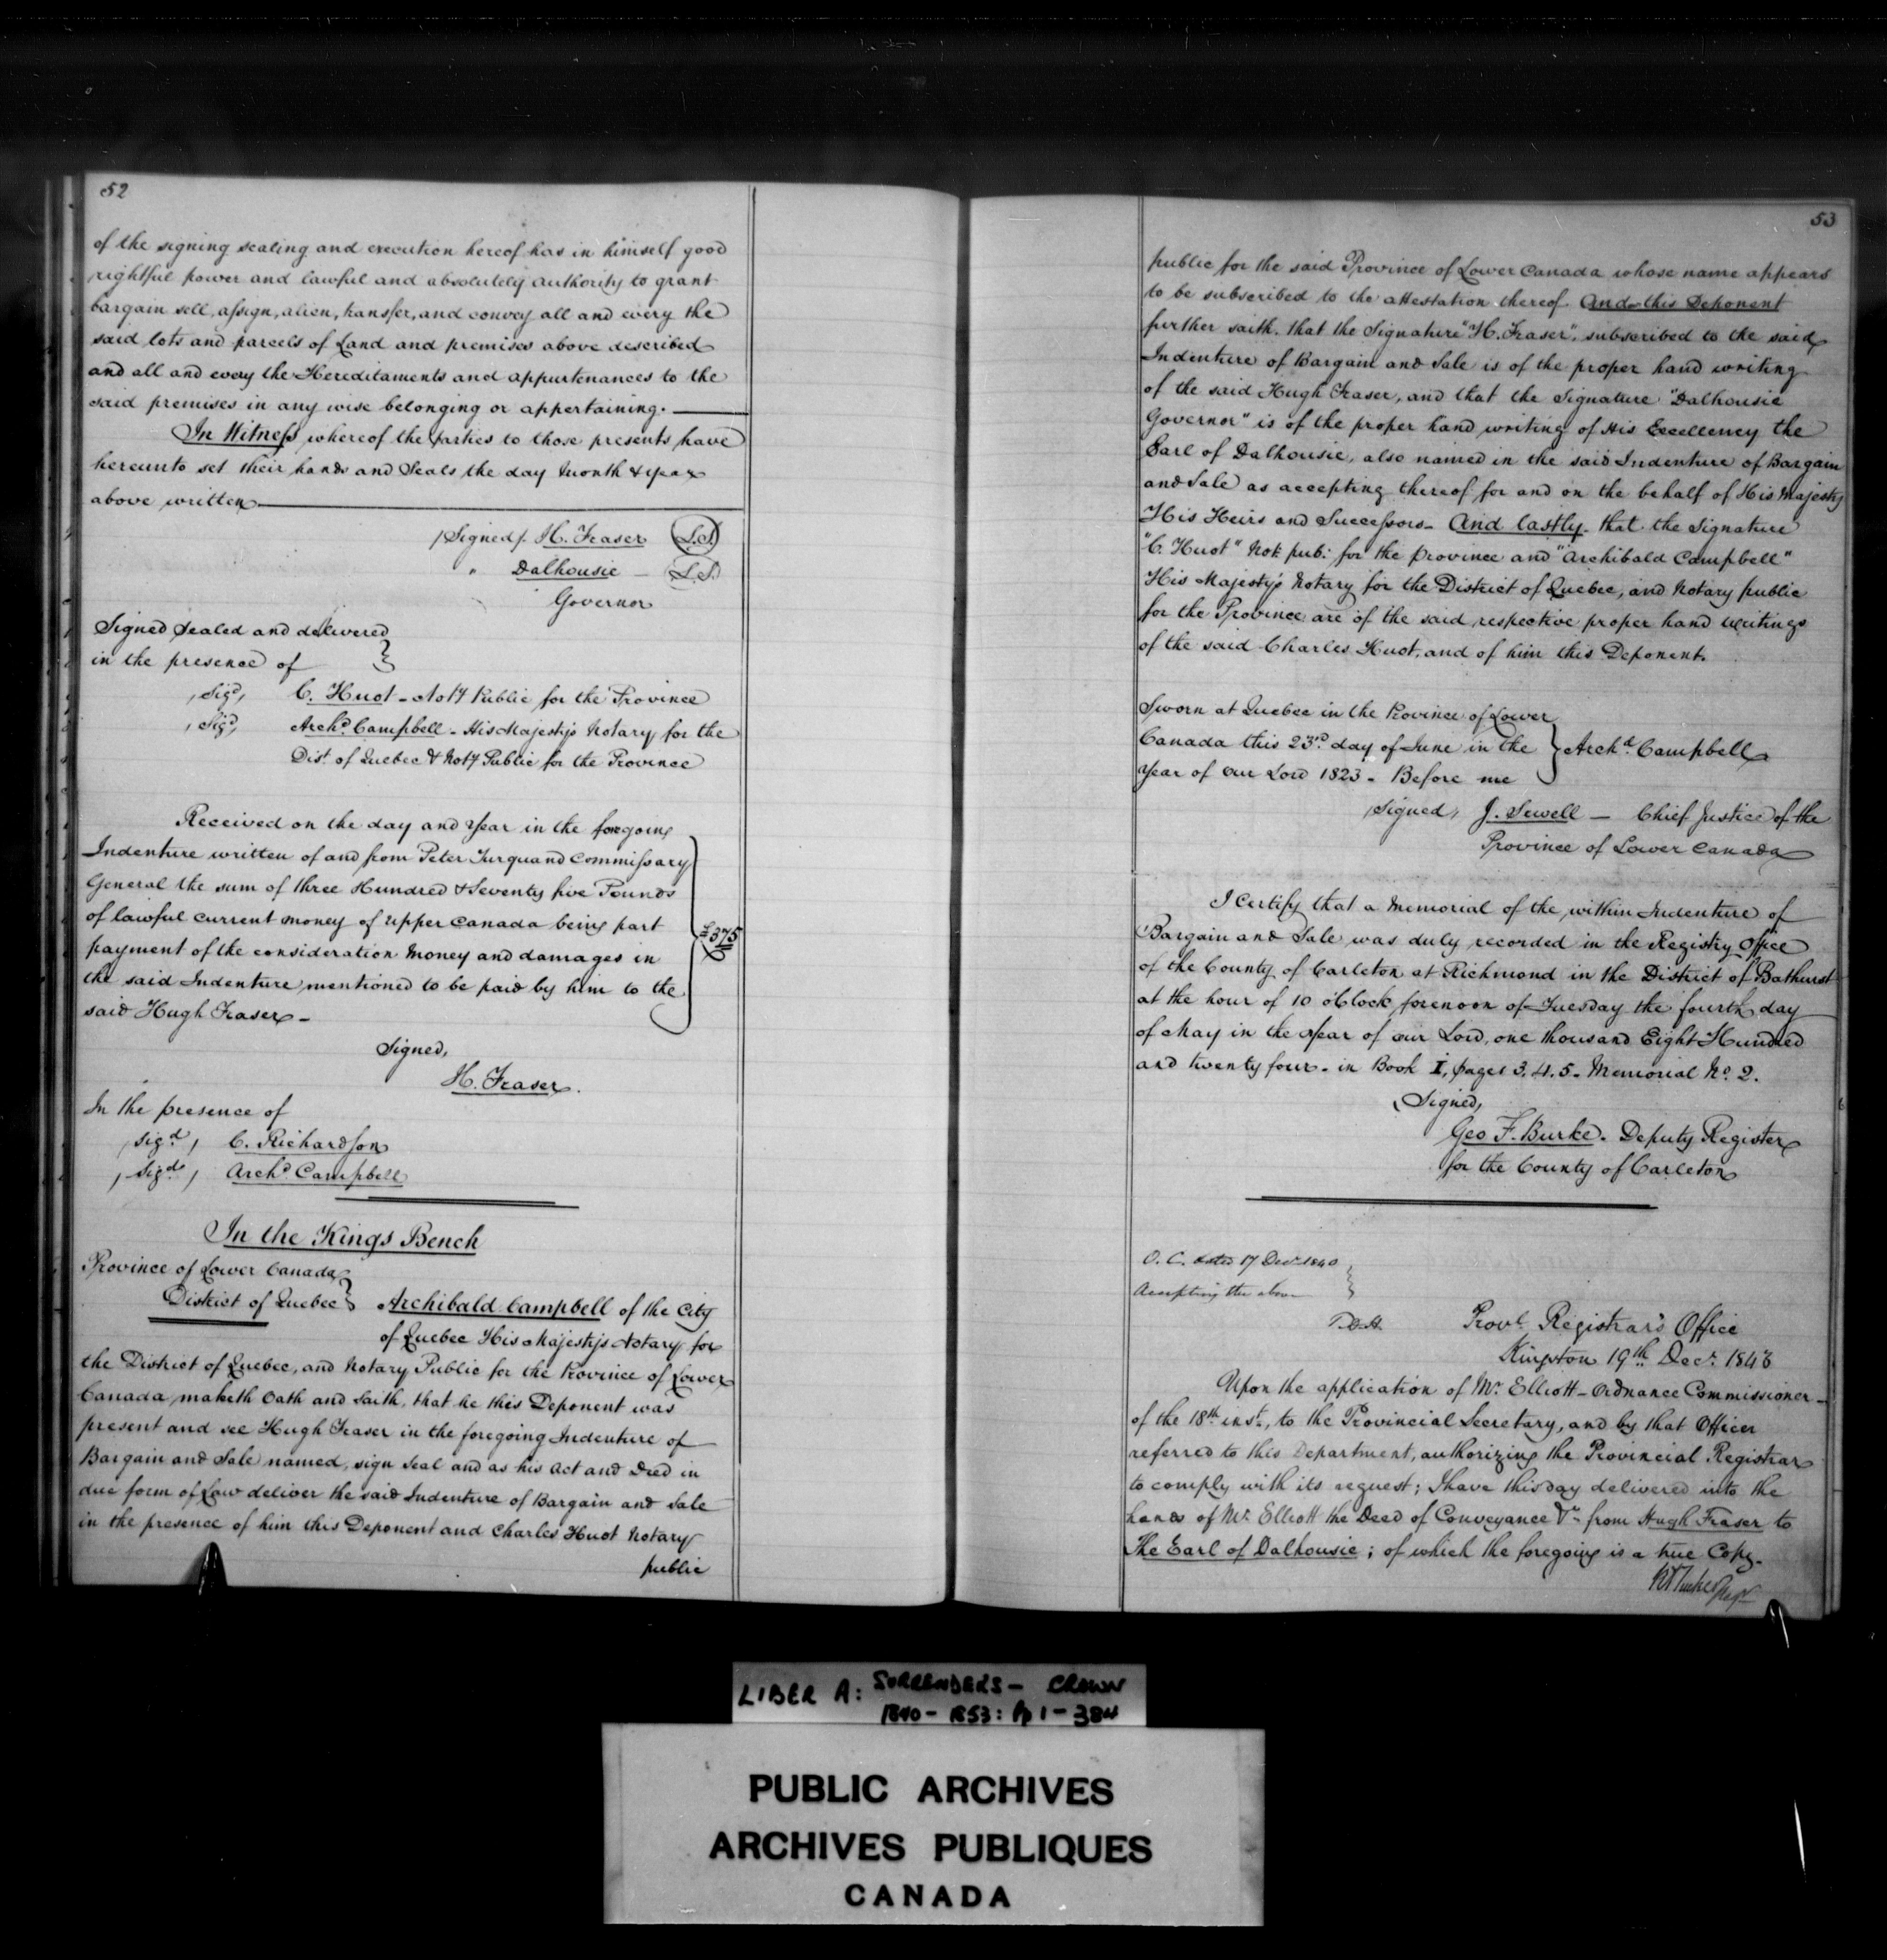 52
of the signing sealing and execution hereof has in himself good
rightful power and lawful and absolutely authority to grant
bargain sell, assign, alien, transfer, and convey all and every the
said lots and parcels of Land and premises above described
and all and every the Hereditaments and appurtenances to the
said premises in any wise belonging or appertaining.
In Witness whereof the parties to those presents have
hereunto set their hands and Seals the day Month & year
above written
/Signed/. H. Fraser L.S.
" Dalhousie – L.S.
Governor
Signed Sealed and delivered
in the presence of
, Sigd, C. Huot – Noty Public for the Province
, Sigd, Archd. Campbell – His Majestys Notary for the
Dist. of Quebec & Noty Public for the Province
Received on the day and Year in the foregoing
Indenture written of and from Peter Turquand Commissary
General the sum of three Hundred & Seventy five Pounds
of lawful current money of Upper Canada being part
£375
payment of the consideration Money and damages in
the said Indenture mentioned to be paid by him to the
said Hugh Fraser –
Signed,
H. Fraser.
In the presence of
, Sigd, C. Richardson
, Sigd, Archd. Campbell
In the Kings Bench
Province of Lower Canada
District of Quebec } Archibald Campbell of the City
of Quebec His Majestys Notary for
the District of Quebec, and Notary Public for the Province of Lower
Canada maketh Oath and Saith, that he this Deponent was
present and see Hugh Fraser in the foregoing Indenture of
Bargain and Sale named, sign Seal and as his Act and Deed in
due form of Law deliver the said Indenture of Bargain and Sale
in the presence of him this Deponent and Charles Huot Notary
public
53
public for the said Province of Lower Canada whose name appears
to be subscribed to the attestation thereof And this Deponent
further saith. that the Signature "H. Fraser", subscribed to the said
Indenture of Bargain and Sale is of the proper hand writing
of the said Hugh Fraser, and that the Signature "Dalhousie
Governor" is of the proper hand writing of His Excellency the
Earl of Dalhousie, also named in the said Indenture of Bargain
and Sale as accepting thereof for and on the behalf of His Majesty
His Heirs and Successors – And lastly. that the Signature
"C. Huot" Not: pub: for the province and "Archibald Campbell"
His Majestys Notary for the District of Quebec, and Notary public
for the Province are of the said respective proper hand writings
of the said Charles Huot, and of him this Deponent.
Sworn at Quebec in the Province of Lower
Canada this 23rd day of June in the } Archd. Campbell
Year of our Lord 1823 – Before me
, Signed, J. Sewell – Chief Justice of the
Province of Lower Canada
I Certify that a Memorial of the within Indenture of
Bargain and Sale was duly recorded in the Registry Office
of the County of Carleton at Richmond in the District of Bathurst
at the hour of 10 o'Clock forenoon of Tuesday the fourth day
of May in the Year of our Lord, one thousand Eight Hundred
and twenty four. in Book I, pages 3. 4. 5. Memorial No. 2.
, Signed,
Geo F. Burke. Deputy Register
for the County of Carleton
O. C. dated 17 Decr 1840
Accepting the above
Provl Registrar's Office
Kingston 19th Decr. 1843
Upon the application of Mr. Elliott – Ordnance Commissioner –
of the 18th inst., to the Provincial Secretary, and by that Officer
referred to this Department, authorizing the Provincial Registrar
to comply with its request; I have this day delivered into the
hands of Mr. Elliott the Deed of Conveyance &c from Hugh Fraser to
The Earl of Dalhousie; of which the foregoing is a true Copy.
LIBER A: SURRENDERS – CROWN
1840 – 1853: Pp 1 – 384
PUBLIC ARCHIVES
ARCHIVES PUBLIQUES
CANADA